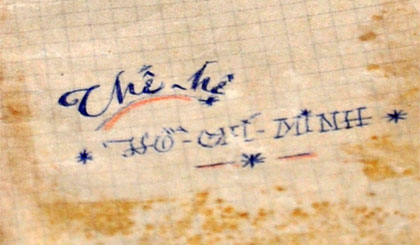 Thế-hệ
* "HỒ-CHÍ-MINH *